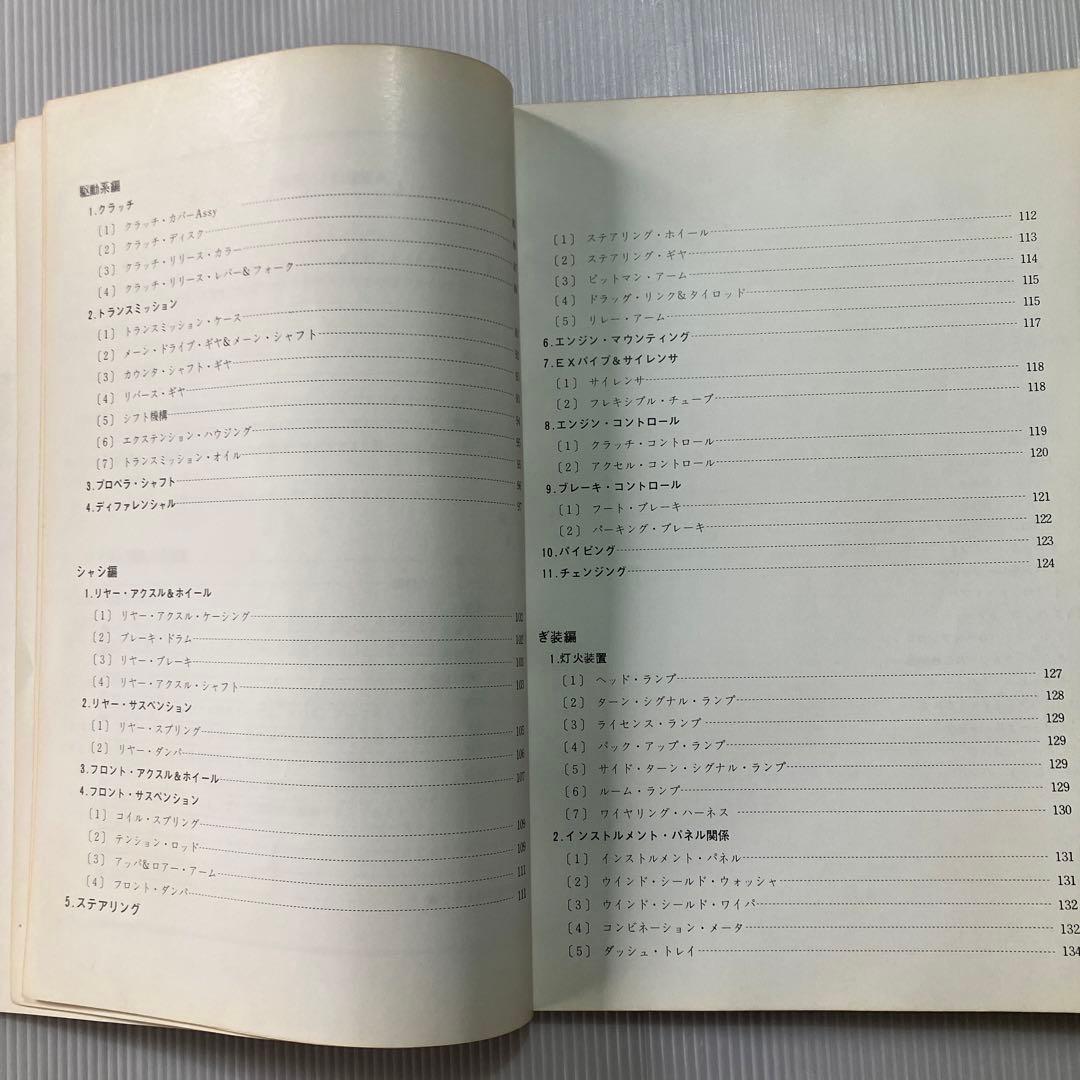 駆動系編
1.クラッチ
〔1〕 クラッチ・カバーAssy
〔2〕 クラッチ・ディスク
〔3〕 クラッチ・リリース・カラー
〔4〕 クラッチ・リリース・レバー&フォーク
2.トランスミッション
〔1〕 トランスミッション・ケース
〔2〕 メーン・ドライブ・ギヤ&メーン・シャフト
〔3〕 カウンタ・シャフト・ギヤ
〔4〕 リバース・ギヤ
〔5〕 シフト機構 94
〔6〕 エクステンション・ハウジング 95
〔7〕 トランスミッション・オイル
3.プロペラ・シャフト 96
4.ディファレンシャル 97
シャシ編
1.リヤー・アクスル&ホイール
〔1〕 リヤー・アクスル・ケーシング 102
〔2〕 ブレーキ・ドラム 102
〔3〕 リヤー・ブレーキ 103
〔4〕 リヤー・アクスル・シャフト 103
2.リヤー・サスペンション
〔1〕 リヤー・スプリング 105
〔2〕 リヤー・ダンパ 106
3.フロント・アクスル&ホイール 107
4.フロント・サスペンション
〔1〕 コイル・スプリング 109
〔2〕 テンション・ロッド 109
〔3〕 アッパ&ロアー・アーム 111
〔4〕 フロント・ダンパ 111
5.ステアリング
〔1〕 ステアリング・ホイール 112
〔2〕 ステアリング・ギヤ 113
〔3〕 ピットマン・アーム 114
〔4〕 ドラッグ・リンク&タイロッド 115
〔5〕 リレー・アーム 115
6.エンジン・マウンティング 117
7.EXパイプ&サイレンサ
〔1〕 サイレンサ 118
〔2〕 フレキシブル・チューブ 118
8.エンジン・コントロール
〔1〕 クラッチ・コントロール 119
〔2〕 アクセル・コントロール 120
9.ブレーキ・コントロール
〔1〕 フート・ブレーキ 121
〔2〕 パーキング・ブレーキ 122
10.パイピング 123
11.チェンジング 124
ぎ装編
1.灯火装置
〔1〕 ヘッド・ランプ 127
〔2〕 ターン・シグナル・ランプ 128
〔3〕 ライセンス・ランプ 129
〔4〕 バック・アップ・ランプ 129
〔5〕 サイド・ターン・シグナル・ランプ 129
〔6〕 ルーム・ランプ 129
〔7〕 ワイヤリング・ハーネス 130
2.インストルメント・パネル関係
〔1〕 インストルメント・パネル 131
〔2〕 ウインド・シールド・ウォッシャ 131
〔3〕 ウインド・シールド・ワイパ 132
〔4〕 コンビネーション・メータ 132
〔5〕 ダッシュ・トレイ 134